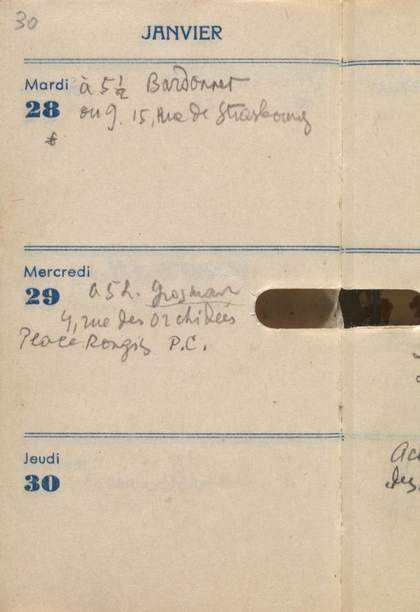 30
JANVIER
Mardi à 5 ½ Bardonnet
28 ou 9. 15, rue de Strasbourg
Mercredi
29 à 5 h. Grosman
4, rue des orchidées
Place Rungis P.C.
Jeudi
30
des